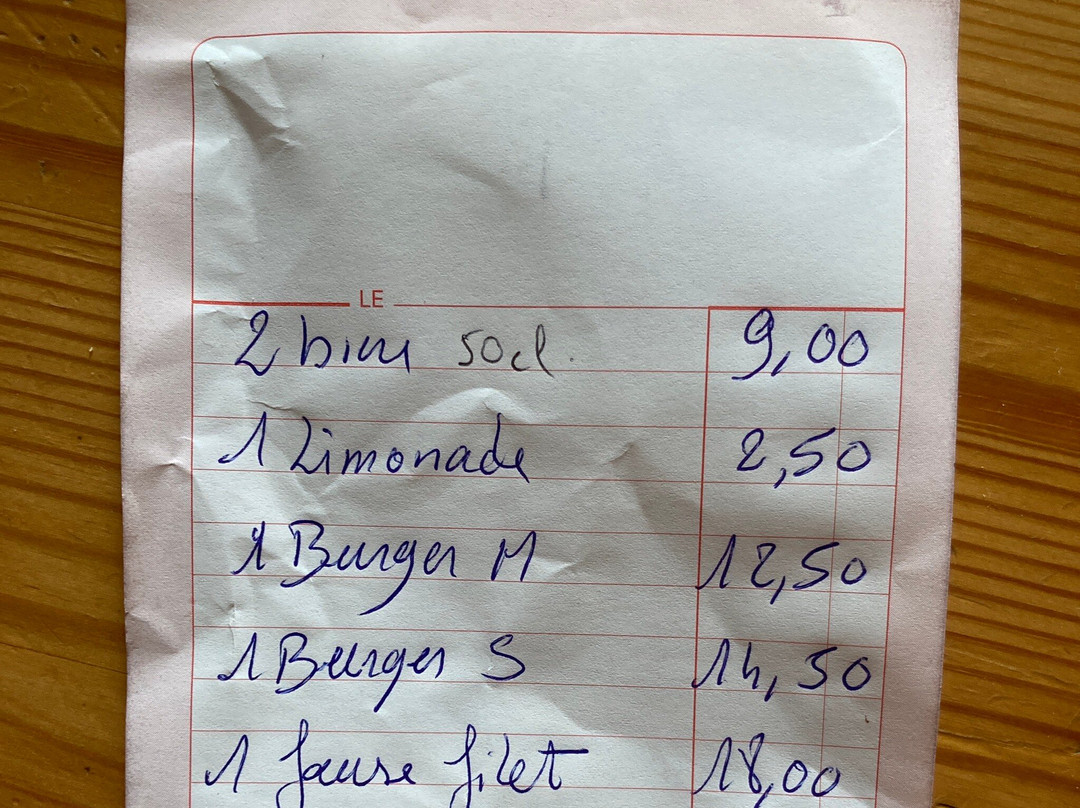 LE
2 bière 50cl. 9,00
1 Limonade 2,50
1 Burger M 12,50
1 Burger S 14,50
1 fause filet 18,00